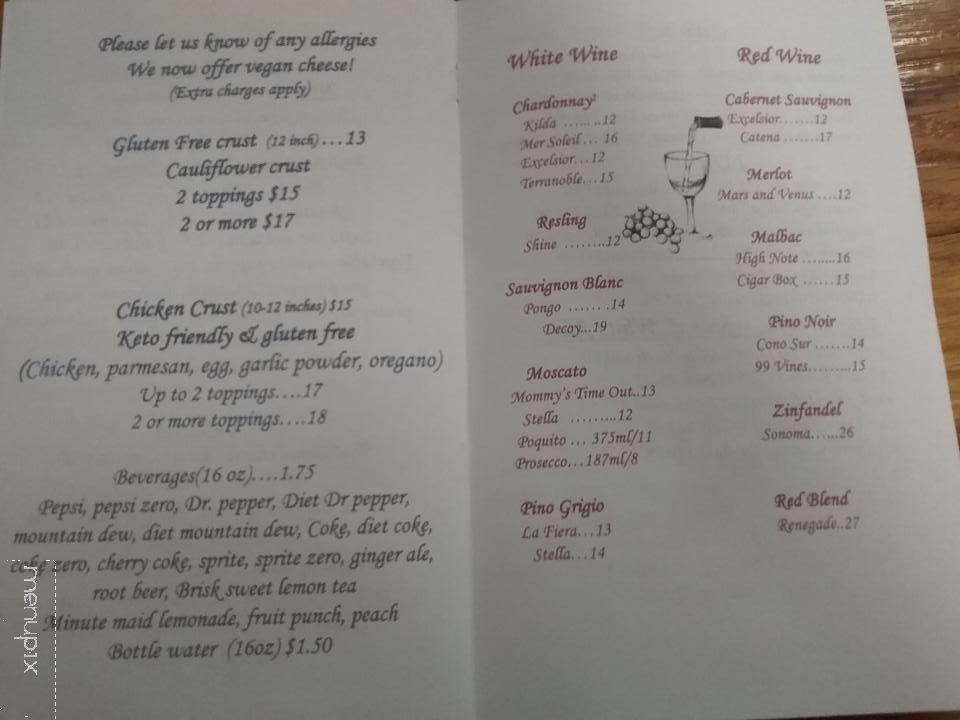 Please let us know of any allergies
We now offer vegan cheese!
(Extra charges apply)
Gluten Free crust (12 inch)...13
Cauliflower crust
2 toppings $15
2 or more $17
Chicken Crust (10-12 inches) $15
Keto friendly & gluten free
(Chicken, parmesan, egg, garlic powder, oregano)
Up to 2 toppings....17
2 or more toppings....18
Beverages(16 oz)....1.75
Pepsi, pepsi zero, Dr. pepper, Diet Dr pepper,
mountain dew, diet mountain dew, Coke, diet coke,
coke zero, cherry coke, sprite, sprite zero, ginger ale,
root beer, Brisk sweet lemon tea
Minute maid lemonade, fruit punch, peach
Bottle water (16oz) $1.50
White Wine
Chardonnay¹
Kilda ...... ..12
Mer Soleil ... 16
Excelsior...12
Terranoble...15
Resling
Shine ........12
Sauvignon Blanc
Pongo ...... .14
Decoy...19
Moscato
Mommy's Time Out..13
Stella .........12
Poquito ... 375ml/11
Prosecco...187ml/8
Pino Grigio
La Fiera...13
Stella...14
Red Wine
Cabernet Sauvignon
Excelsior.......12
Catena .......17
Merlot
Mars and Venus ....12
Malbac
High Note ........16
Cigar Box ......15
Pino Noir
Cono Sur .......14
99 Vines.........15
Zinfandel
Sonoma......26
Red Blend
Renegade..27
menupix